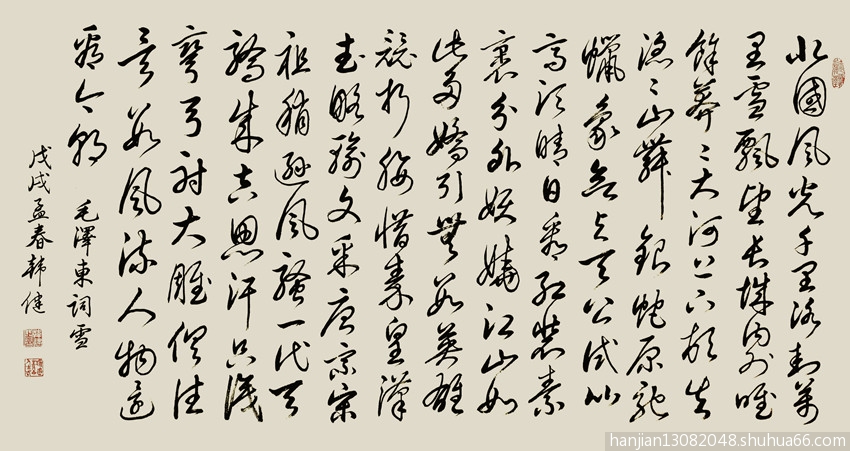 北國風光千里冰封萬
里雪飄望長城內外唯
餘莽〻大河上下頓失
滔〻山舞銀蛇原馳
蠟象欲与天公試比
高須晴日看紅裝素
裹分外妖嬈江山如
此多嬌引無數英雄
競折腰惜秦皇漢
武略輸文采唐宗宋
祖稍遜風騷一代天
驕成吉思汗只識
彎弓射大雕俱往
矣數風流人物還
看今朝 毛澤東詞雪
戊戌孟春韓健
hanjian13082048.shuhua66.com